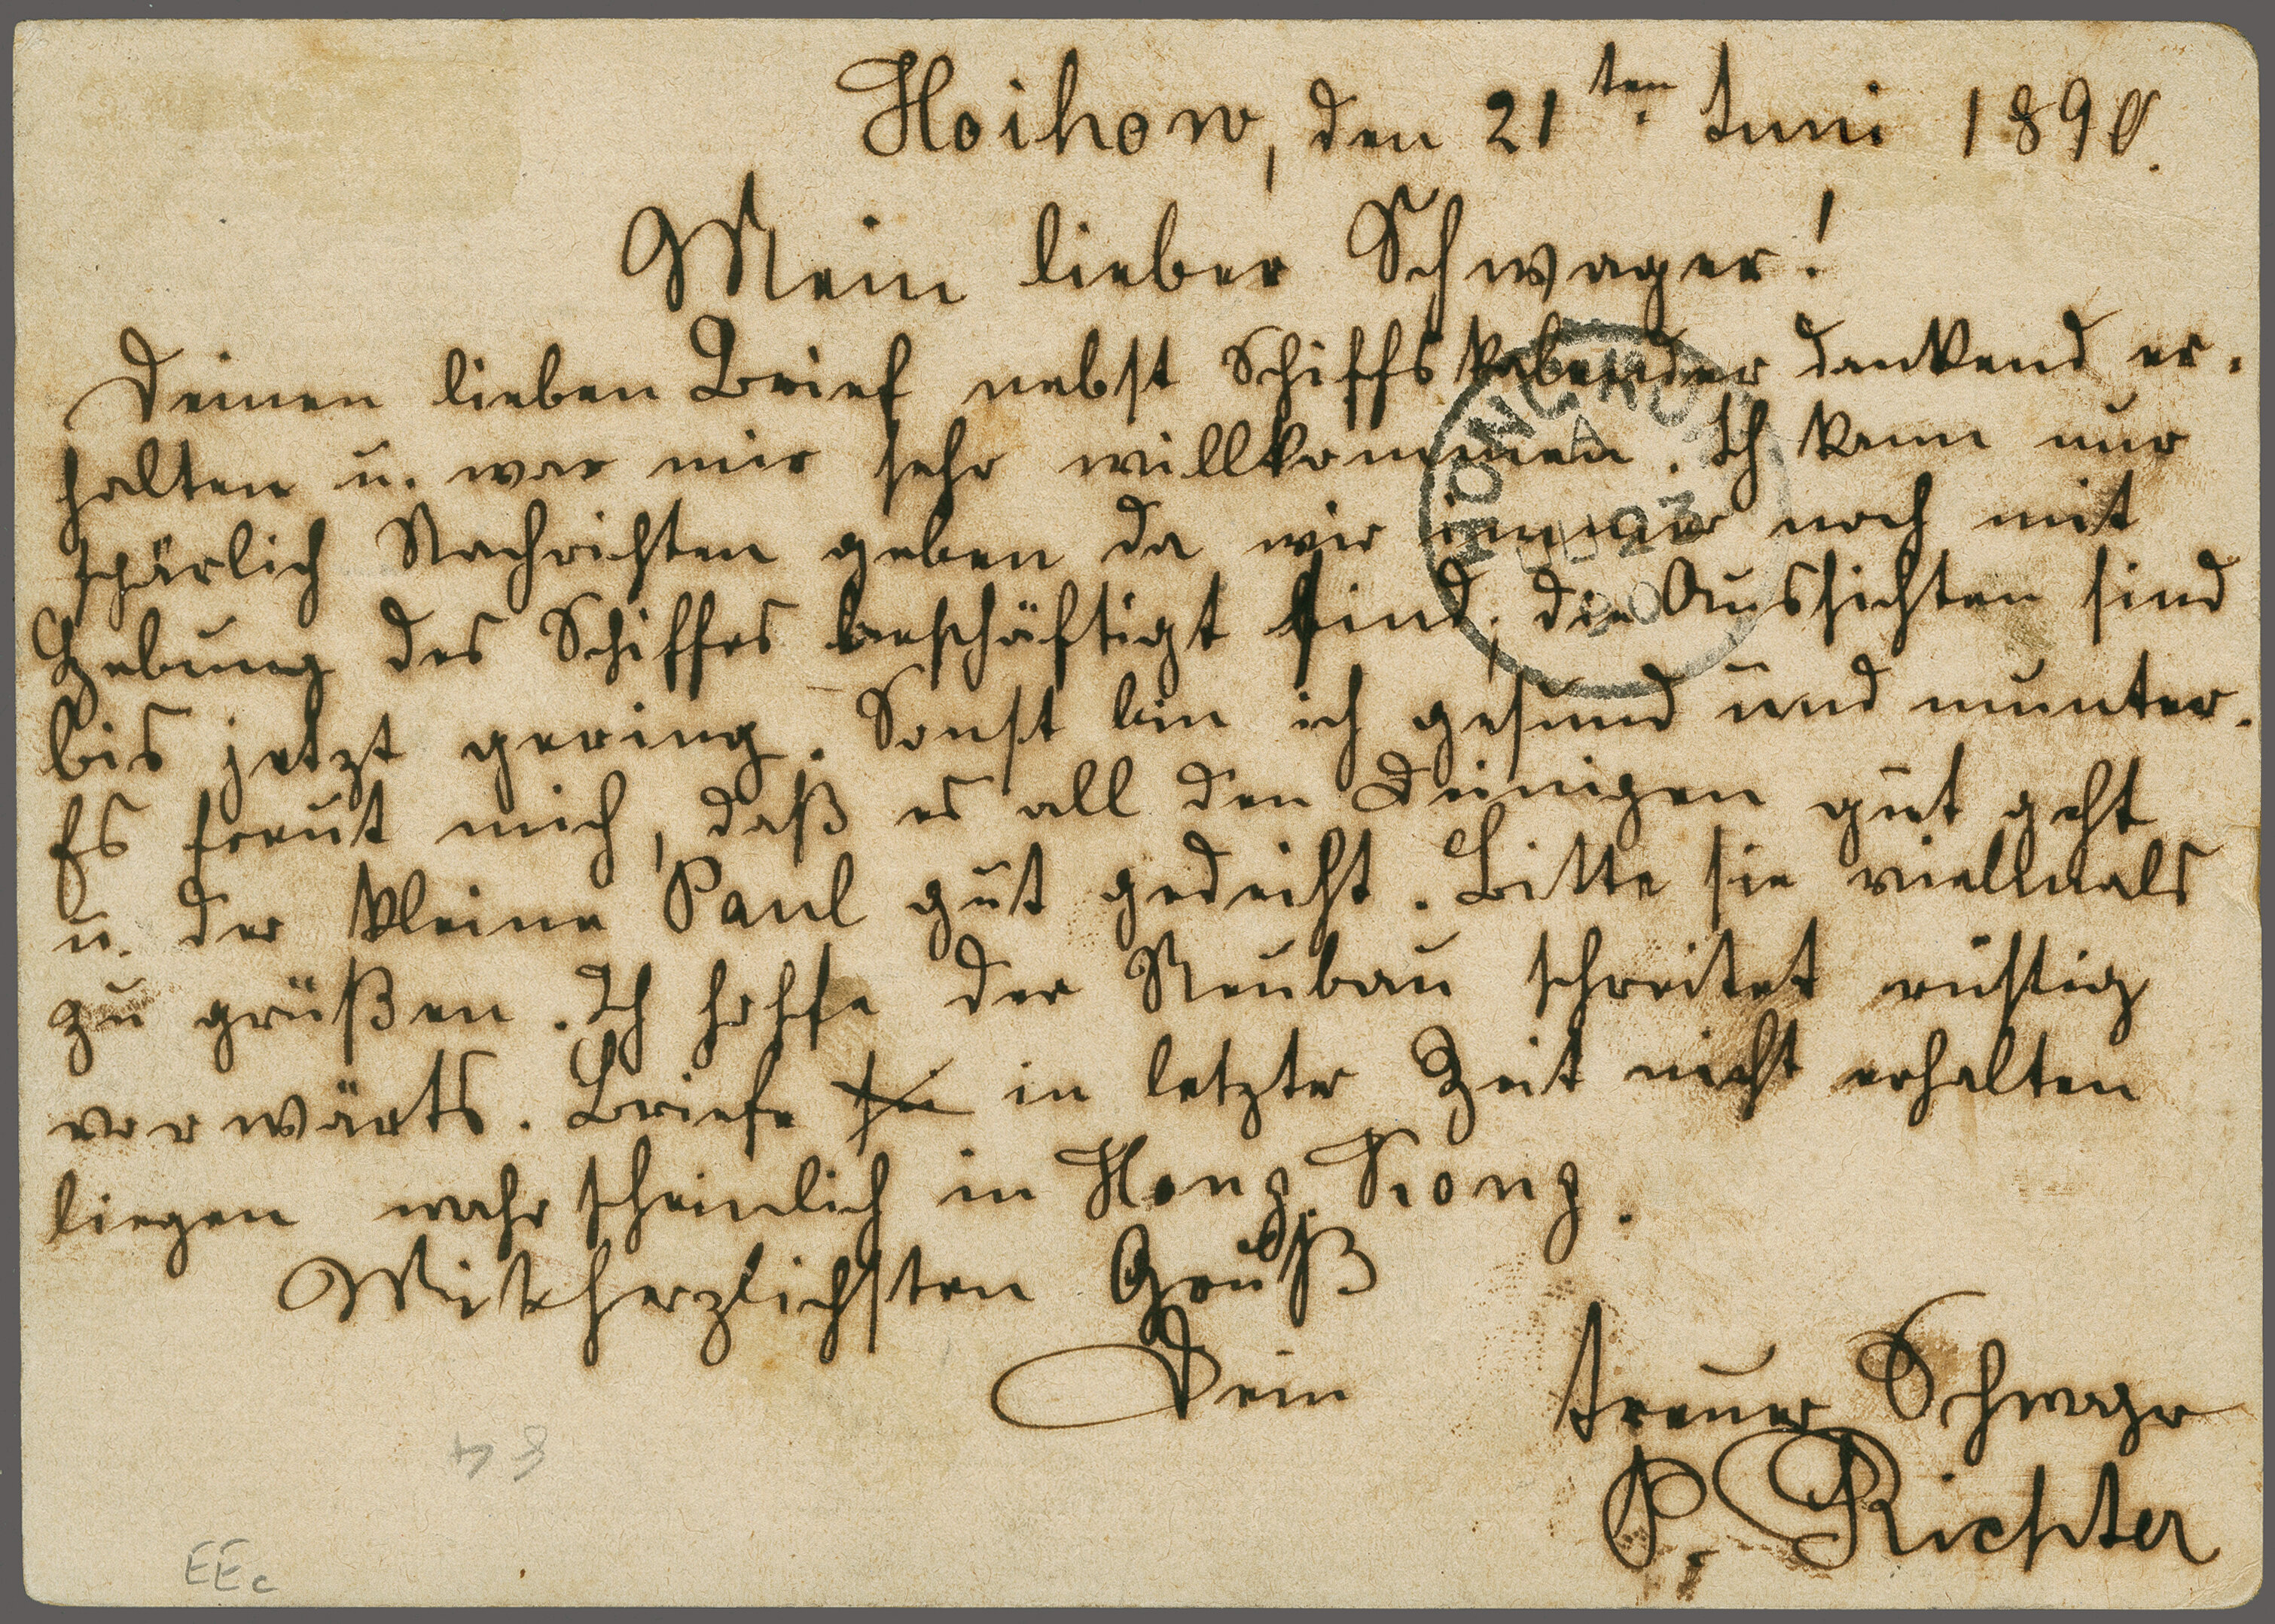 Hoihow, den 21ten Juni 1890.
Mein lieber Schwager!
Deinen lieben Brief nebst Schiffskalender dankend er-
halten u. war mir sehr willkommen. Ich kann nur
spärlich Nachrichten geben da wir immer noch mit
Hebung des Schiffes beschäftigt sind; die Aussichten sind
bis jetzt gering. Sonst bin ich gesund und munter.
Es freut mich, daß es all den Deinigen gut geht
u. der kleine Paul gut gedeiht. Bitte sie vielmals
zu grüßen. Ich hoffe der Neubau schreitet rüstig
vorwärts. Briefe in letzter Zeit nicht erhalten
liegen wahrscheinlich in Hong Kong.
Mit herzlichsten Gruß
Dein treuer Schwager
P. Richter
HONG KO
A
JU 23
90
84
EEc